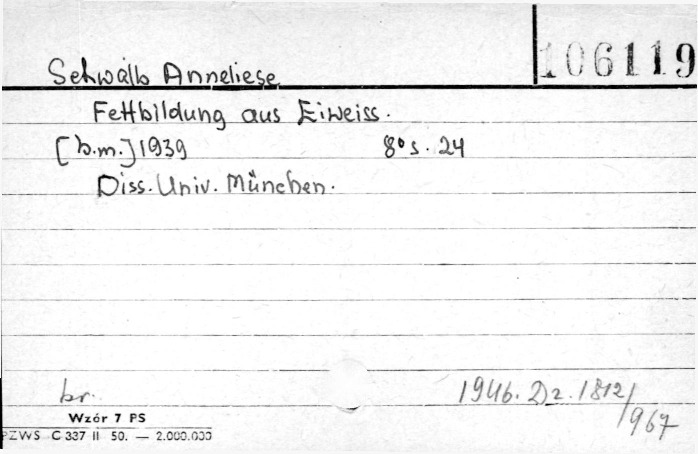 106119
Schwalb Anneliese
Fettbildung aus Eiweiss.
[b.m.] 1939 8° s. 24
Diss. Univ. München.
br. 1946. Dz. 1812/967
Wzór 7 PS
PZWS C 337 II 50. — 2.000.000